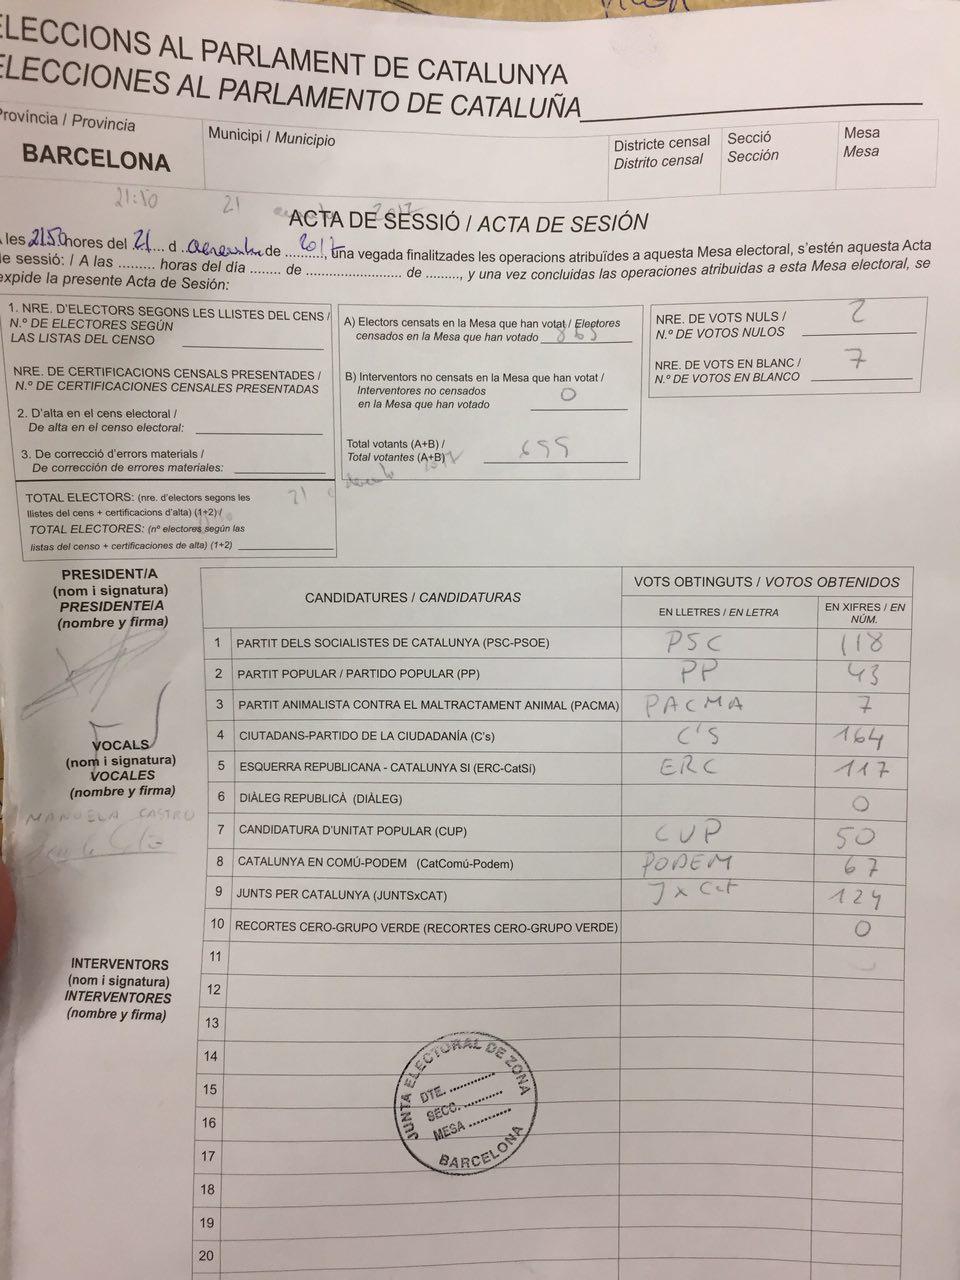 ELECCIONS AL PARLAMENT DE CATALUNYA
ELECCIONES AL PARLAMENTO DE CATALUÑA
Provincia / Provincia
BARCELONA
Municipi / Municipio
Districte censal
Distrito censal
Secció
Sección
Mesa
Mesa
21:50 21 2017
ACTA DE SESSIÓ / ACTA DE SESIÓN
A les 2150 hores del 21 d de 2017, una vegada finalitzades les operacions atribuïdes a aquesta Mesa electoral, s'estén aquesta Acta
de sessió: / A las ......... horas del día ........ de ........................ de ........, y una vez concluidas las operaciones atribuidas a esta Mesa electoral, se
expide la presente Acta de Sesión:
1. NRE. D'ELECTORS SEGONS LES LLISTES DEL CENS /
N.º DE ELECTORES SEGÚN
LAS LISTAS DEL CENSO
NRE. DE CERTIFICACIONS CENSALS PRESENTADES /
N.º DE CERTIFICACIONES CENSALES PRESENTADAS
2. D'alta en el cens electoral /
De alta en el censo electoral:
3. De correcció d'errors materials /
De corrección de errores materiales:
TOTAL ELECTORS: (nre. d'electors segons les
llistes del cens + certificacions d'alta) (1+2) /
TOTAL ELECTORES: (nº electores según las
listas del censo + certificaciones de alta) (1+2)
21
A) Electors censats en la Mesa que han votat / Electores
censados en la Mesa que han votado
B) Interventors no censats en la Mesa que han votat /
Interventores no censados
en la Mesa que han votado 0
Total votants (A+B) /
Total votantes (A+B) 699
2017
NRE. DE VOTS NULS /
N.º DE VOTOS NULOS 2
NRE. DE VOTS EN BLANC /
N.º DE VOTOS EN BLANCO 7
PRESIDENT/A
(nom i signatura)
PRESIDENTE/A
(nombre y firma)
VOCALS
(nom i signatura)
VOCALES
(nombre y firma)
MANUELA CASTRO
INTERVENTORS
(nom i signatura)
INTERVENTORES
(nombre y firma)
CANDIDATURES / CANDIDATURAS
VOTS OBTINGUTS / VOTOS OBTENIDOS
EN LLETRES / EN LETRA
EN XIFRES / EN NÚM.
1 PARTIT DELS SOCIALISTES DE CATALUNYA (PSC-PSOE) PSC 118
2 PARTIT POPULAR / PARTIDO POPULAR (PP) PP 43
3 PARTIT ANIMALISTA CONTRA EL MALTRACTAMENT ANIMAL (PACMA) PACMA 7
4 CIUTADANS-PARTIDO DE LA CIUDADANÍA (C's) C'S 164
5 ESQUERRA REPUBLICANA - CATALUNYA SI (ERC-CatSí) ERC 117
6 DIÀLEG REPUBLICÀ (DIÀLEG) 0
7 CANDIDATURA D'UNITAT POPULAR (CUP) CUP 50
8 CATALUNYA EN COMÚ-PODEM (CatComú-Podem) PODEM 67
9 JUNTS PER CATALUNYA (JUNTSxCAT) JxCat 124
10 RECORTES CERO-GRUPO VERDE (RECORTES CERO-GRUPO VERDE) 0
11
12
13
14
15
16
17
18
19
20
JUNTA ELECTORAL DE ZONA
DTE. ............
SECC. ............
MESA ............
BARCELONA